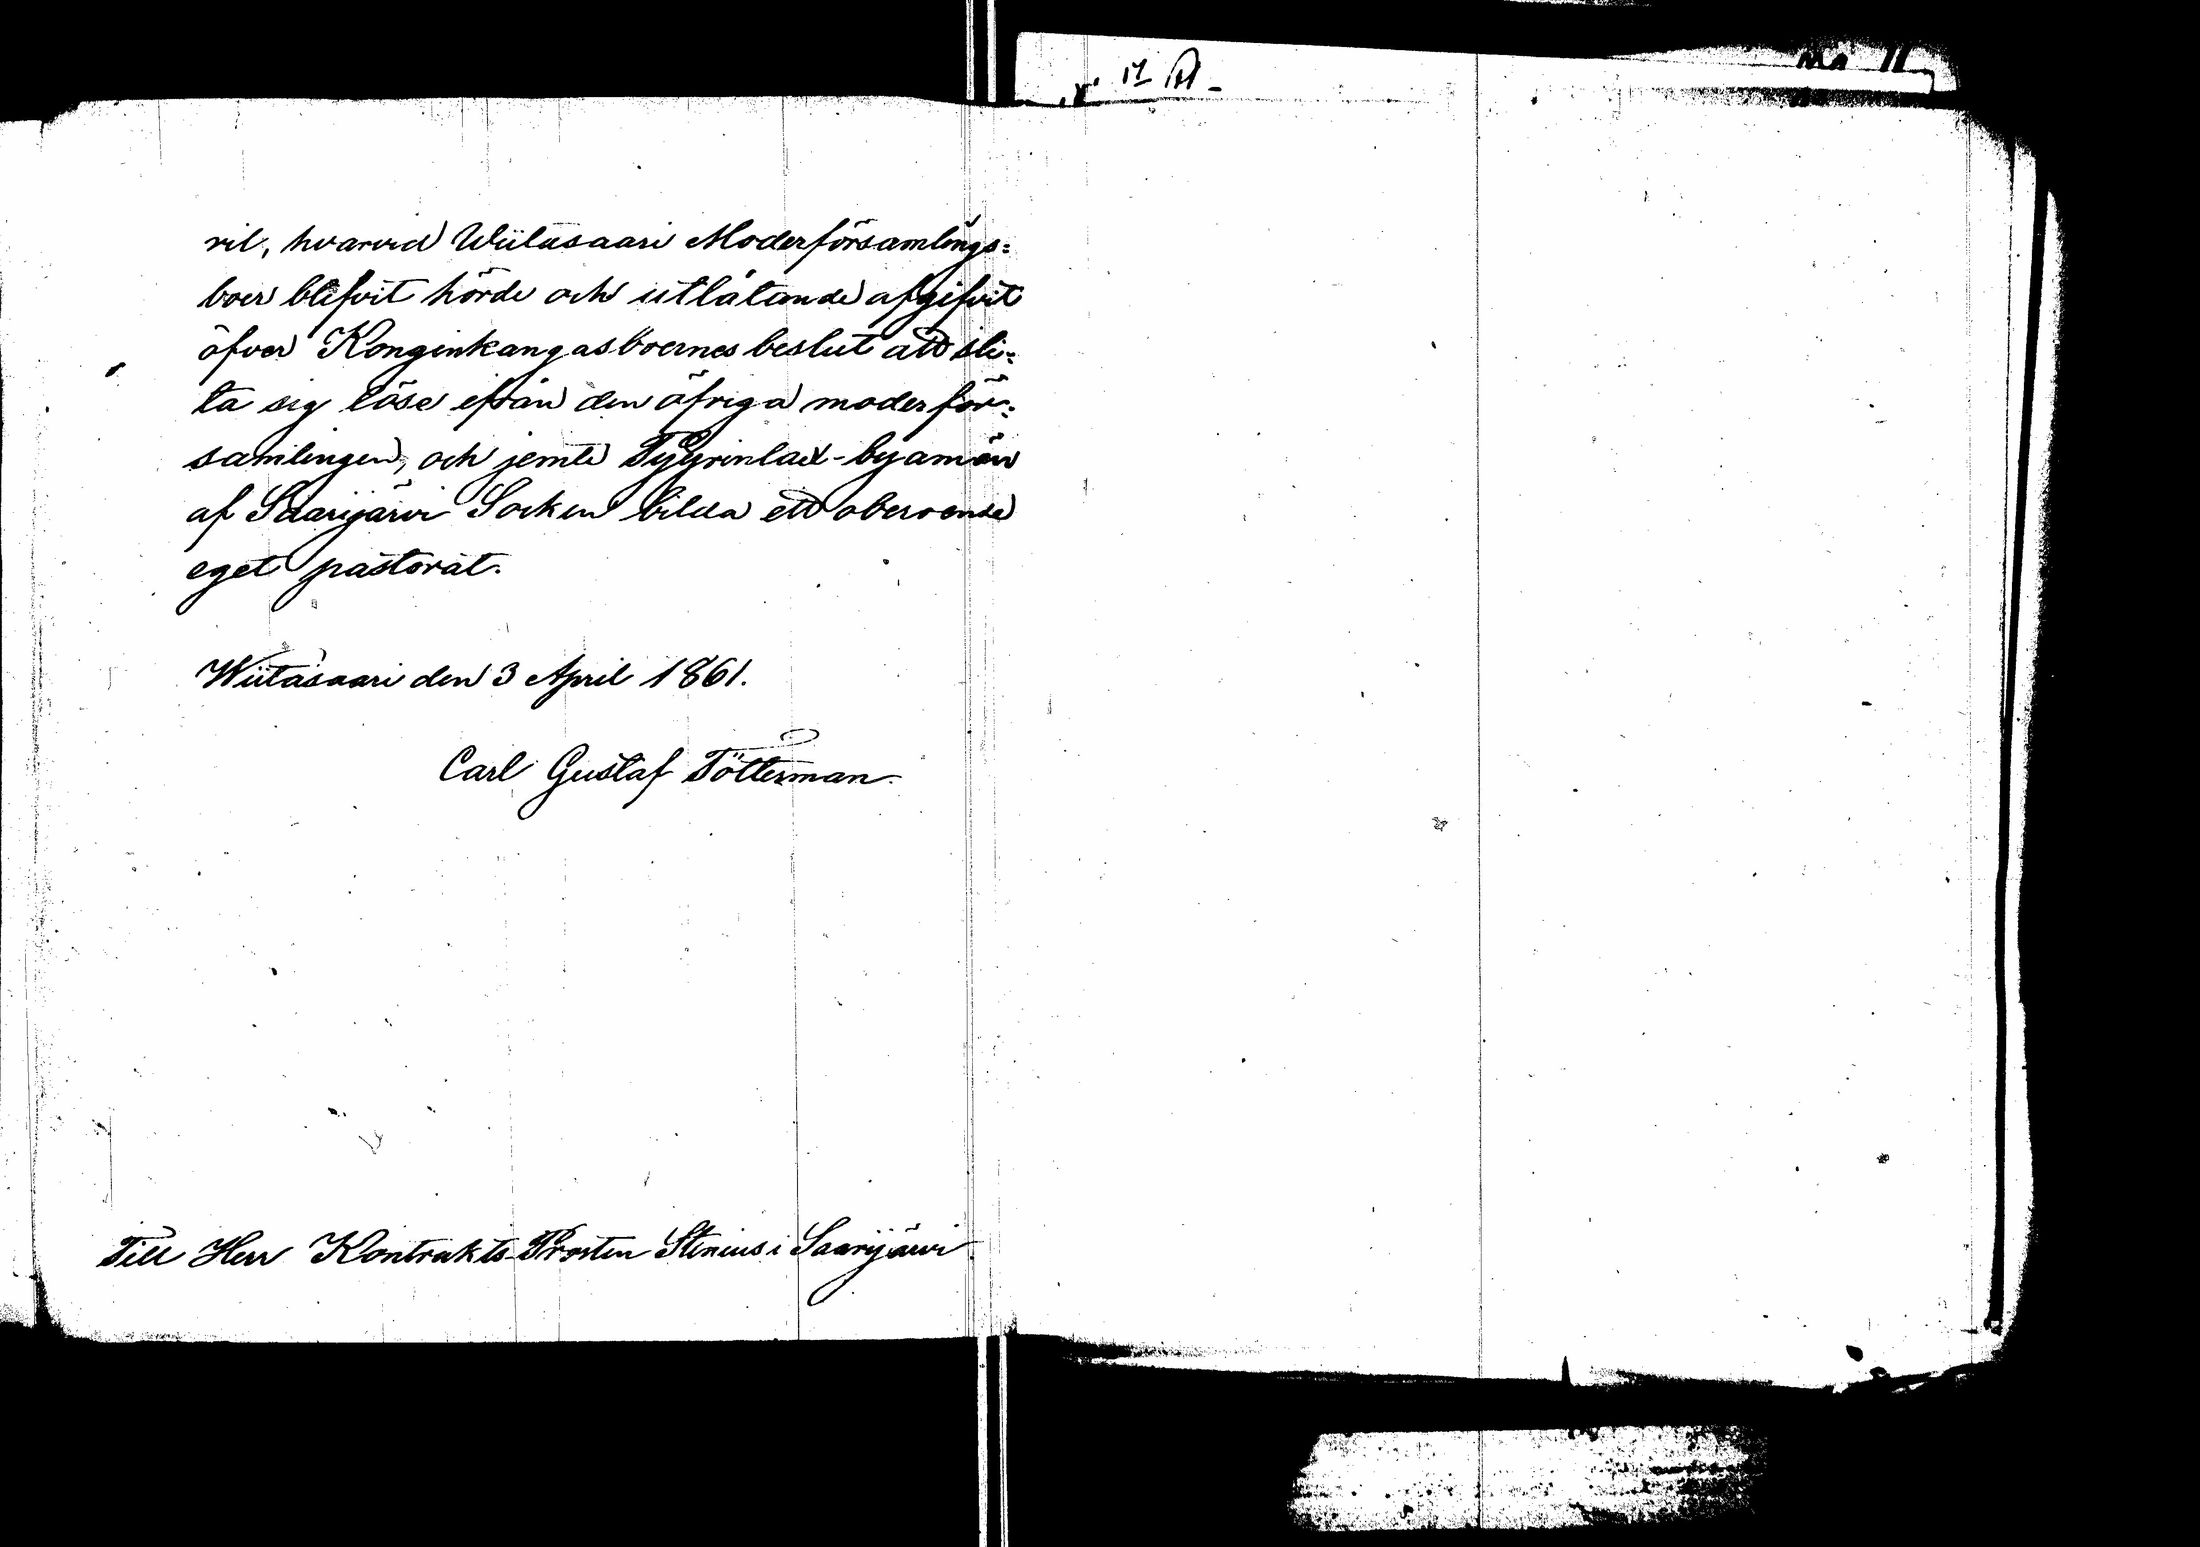 ril, hvarvid Wiitasaari Moderförsamlings=
boer blifvit hörde och utlåtande afgifvit
öfver Konginkangasboernes beslut att sli=
ta sig löse ifrån den öfriga moderför=
samlingen, och jemte Pyyrinlax-byamän
af Saarijärvi Socken bilda ett oberoende
eget pastorat.
Wiitasaari den 3 April 1861.
Carl Gustaf Tötterman.
Till Herr Kontrakts-Prosten Stenius i Saarijärvi.